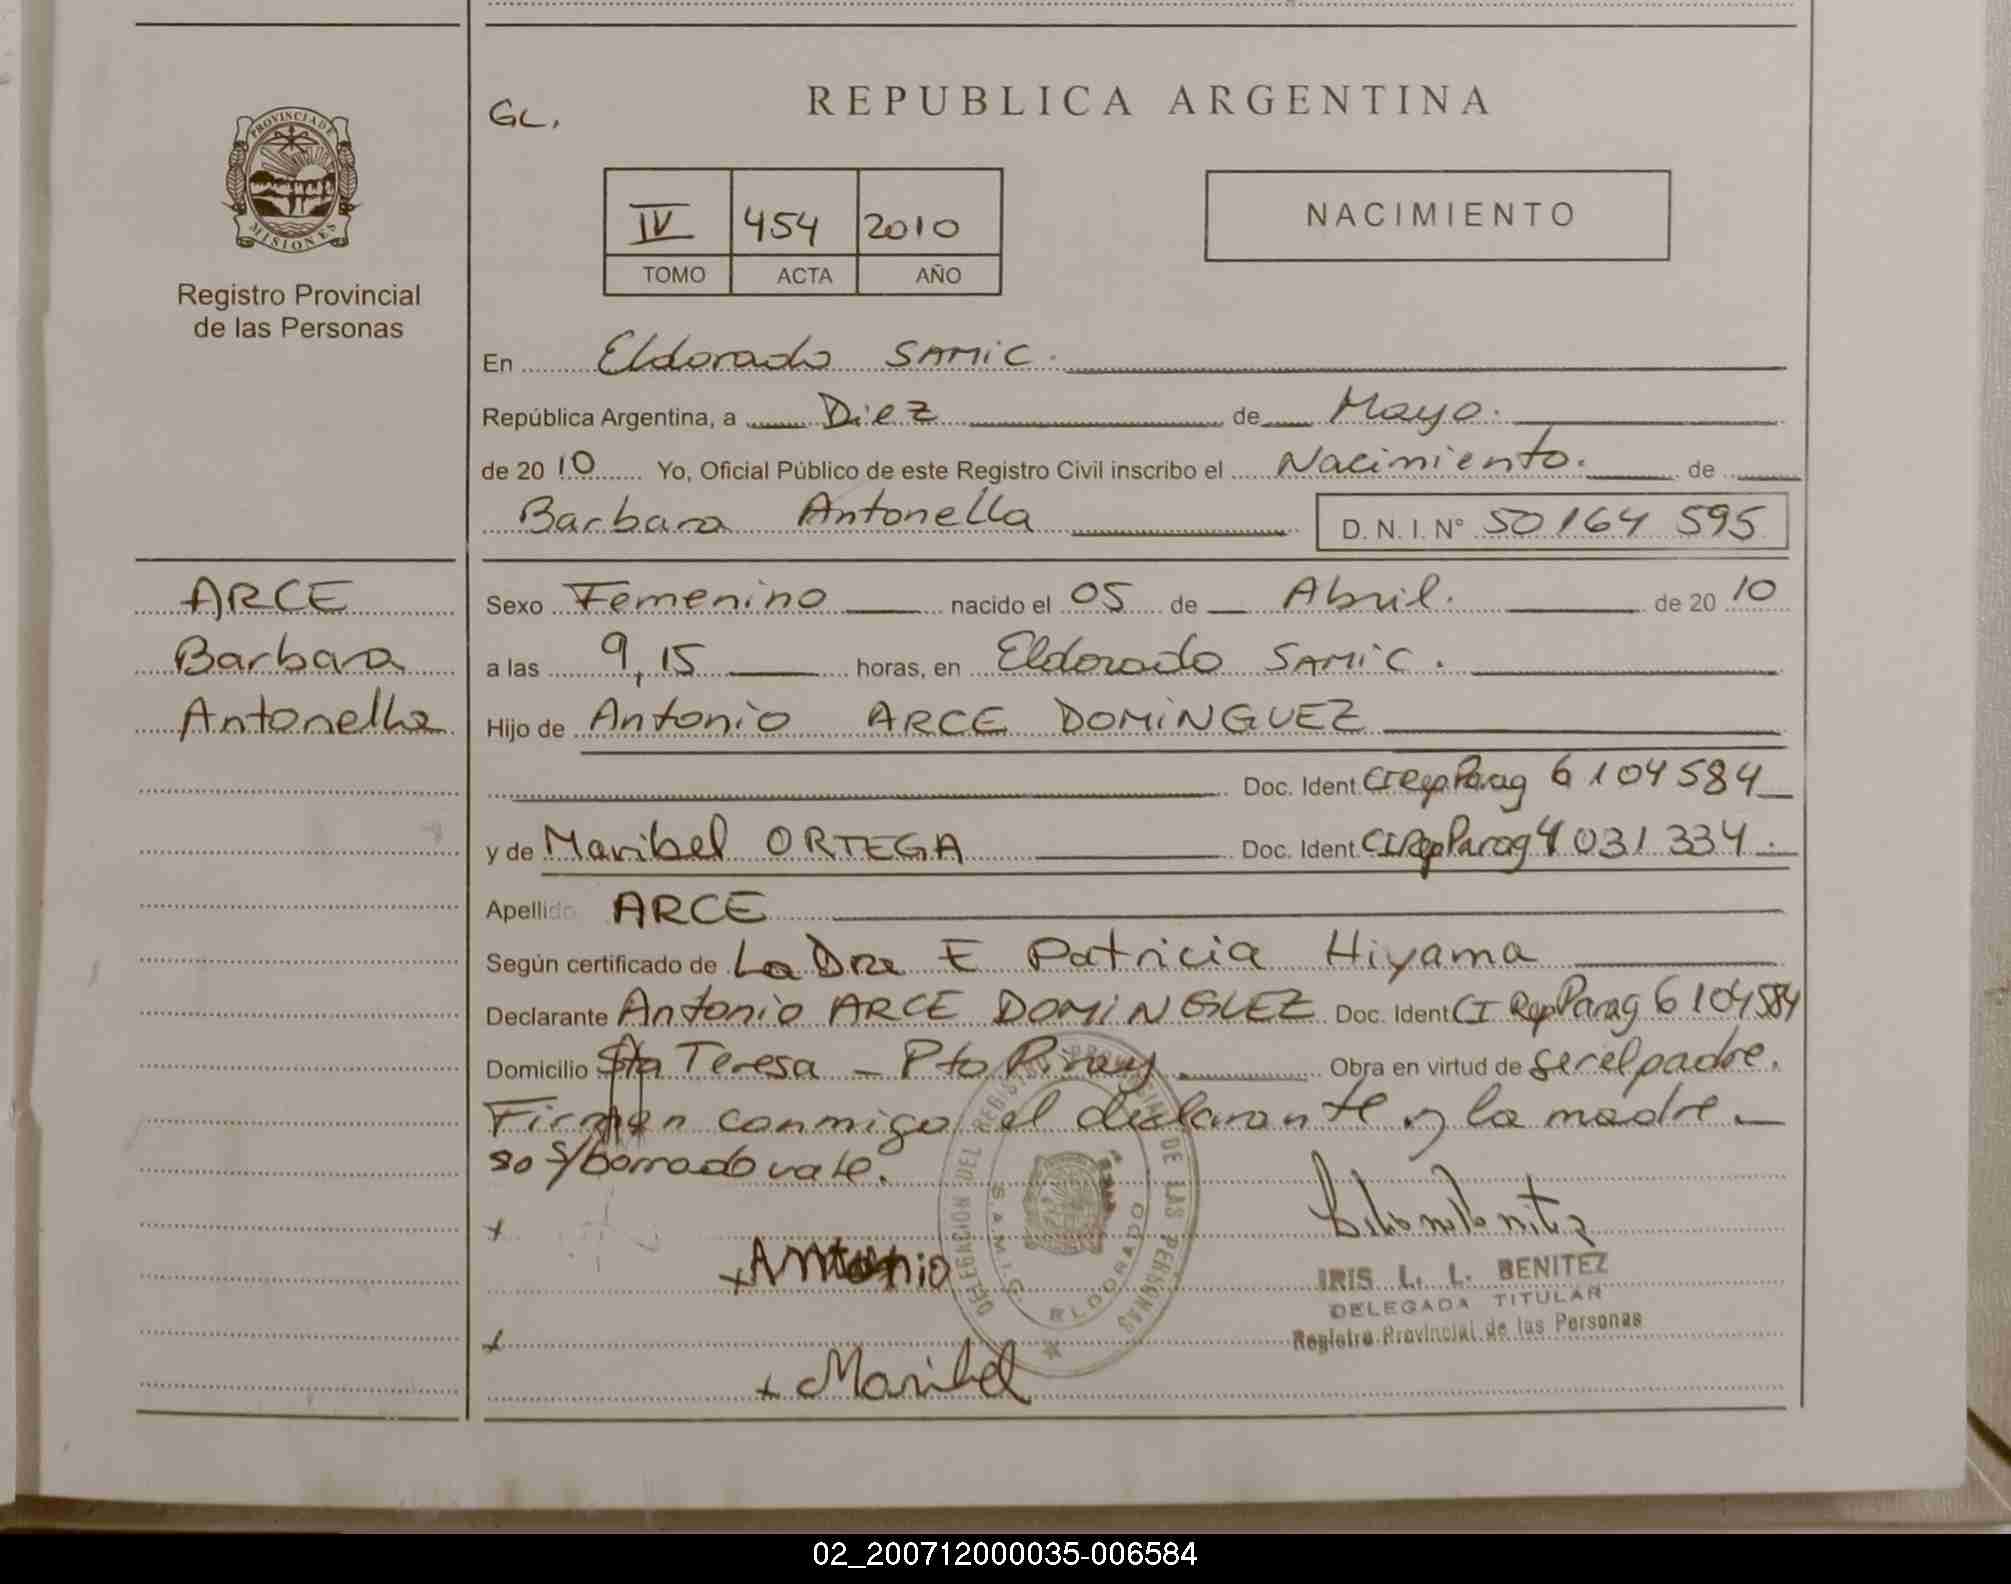 GL.
REPUBLICA ARGENTINA
PROVINCIA DE
MISIONES
Registro Provincial
de las Personas
IV 454 2010
TOMO ACTA AÑO
NACIMIENTO
En Eldorado SAMIC.
República Argentina, a Diez de Mayo.
de 2010 Yo, Oficial Público de este Registro Civil inscribo el Nacimiento. de
Barbara Antonella D. N. I. N° 50164 595
ARCE
Barbara
Antonella
Sexo Femenino nacido el 05 de Abril. de 2010
a las 9,15 horas, en Eldorado SAMIC.
Hijo de Antonio ARCE DOMINGUEZ
Doc. Ident. CI Rep Parag 6104584
y de Maribel ORTEGA Doc. Ident. CI Rep Parag 4031334.
Apellido ARCE
Según certificado de La Dra E Patricia Hiyama
Declarante Antonio ARCE DOMINGUEZ Doc. Ident CI Rep Parag 6104584
Domicilio Sta Teresa - Pto Piray. Obra en virtud de ser el padre.
Firman conmigo el declarante y la madre.
so s/borrado vale.
x
x Antonio
x
x Maribel
DELEGACION DEL REGISTRO PROVINCIAL DE LAS PERSONAS
S.A.M.I.C. ELDORADO
IRIS L. L. BENITEZ
DELEGADA TITULAR
Registro Provincial de las Personas
02_200712000035-006584